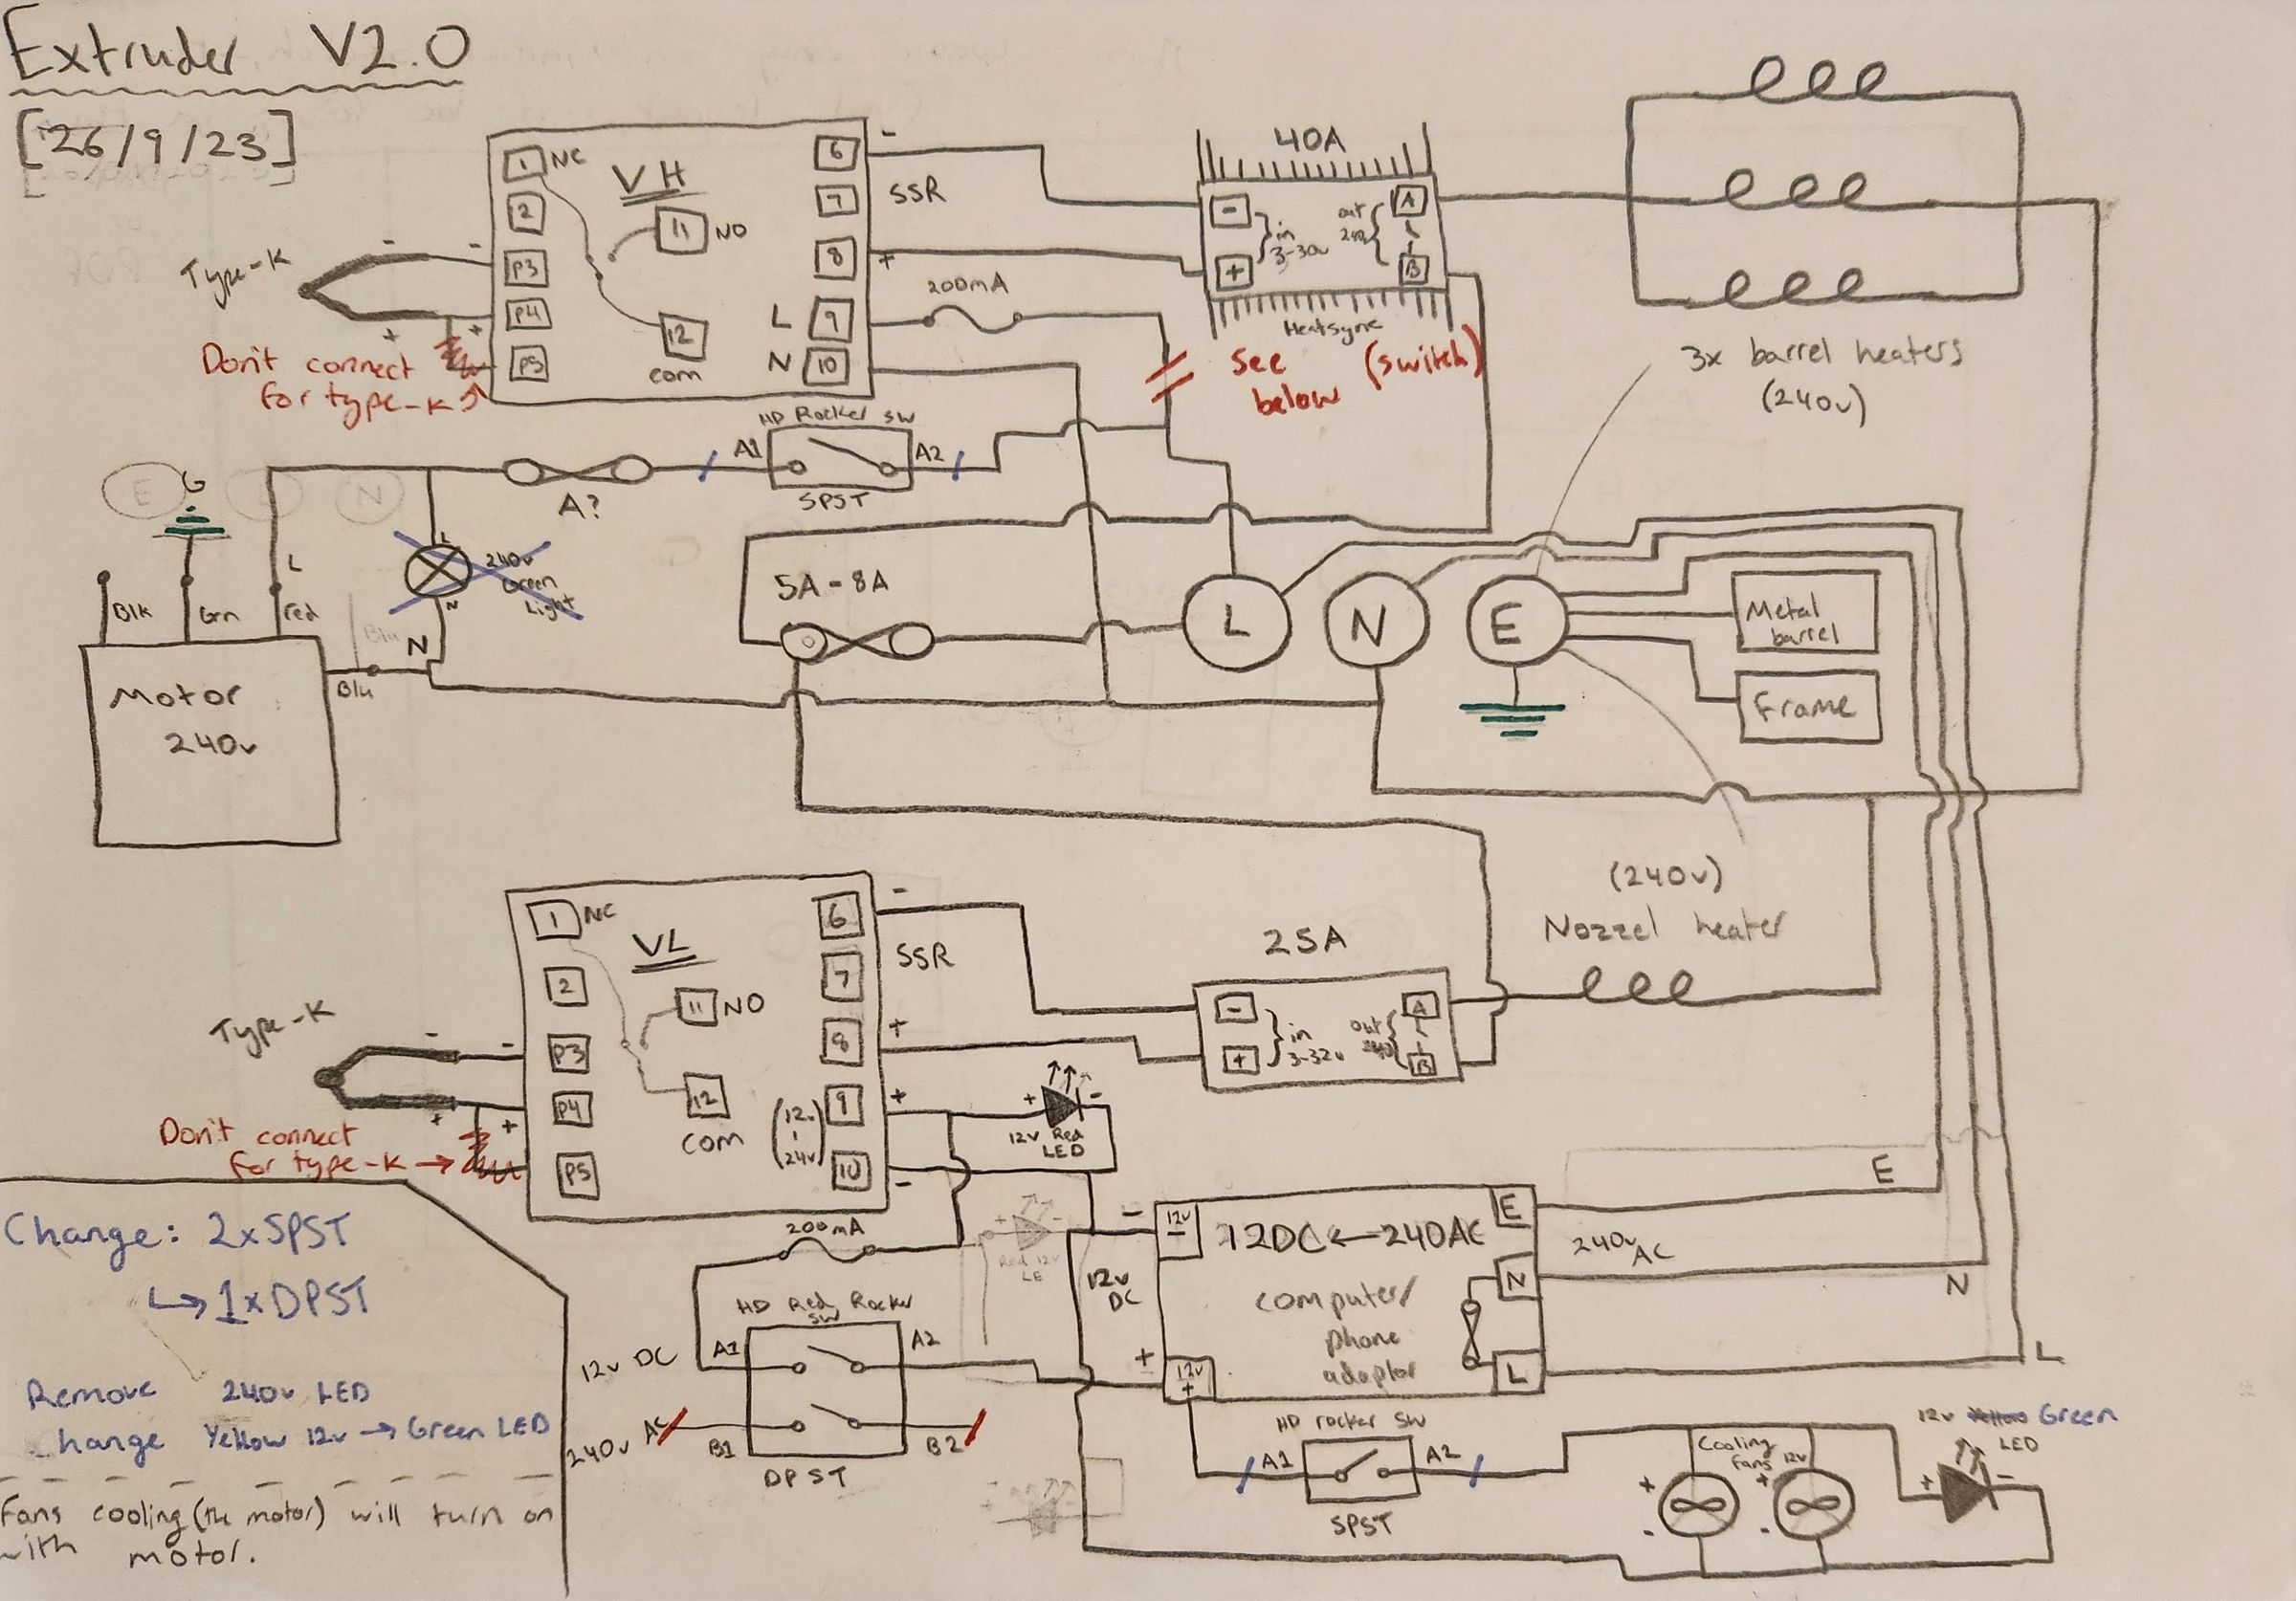 Extruder V2.0
[26/9/23]
1 NC
2
P3
P4
P5
VH
11 NO
12
com
6 -
7
8 +
L 9
N 10
SSR
200mA
Type-K
-
-
+
+
Don't connect
for type-K
40A
-
+
in
3-30v
out
240
A
B
Heatsync
See (switch)
below
3x barrel heaters
(240v)
HD Rocker SW
A1
A2
SPST
A?
E
L
N
G
L
Blk
Grn
red
Blu
Blu
N
L
N
240v
Green
Light
Motor
240v
5A-8A
L
N
E
Metal
barrel
Frame
(240v)
Nozzel heater
1 NC
2
P3
P4
P5
VL
11 NO
12
com
6 -
7
8 +
9 +
10 -
(12.
-
24v)
SSR
Type-K
-
-
+
+
Don't connect
for type-K →
25A
-
+
in
3-32v
out
240
A
B
+
-
12v Red
LED
200mA
+
-
Red 12v
LE
HD Red, Rocker
SW
12v DC
A1
A2
240v AC
B1
B2
DPST
12v
DC
-
12v
-
+
12v
+
12DC←240AC
computer/
phone
adaptor
E
N
L
E
240v
AC
N
L
HD rocker SW
A1
A2
SPST
Cooling
fans 12v
+
-
+
-
12v Yellow Green
LED
+
-
Change: 2xSPST
↳ 1xDPST
Remove 240v LED
hange Yellow 12v → Green LED
Fans cooling (the motor) will turn on
with motor.